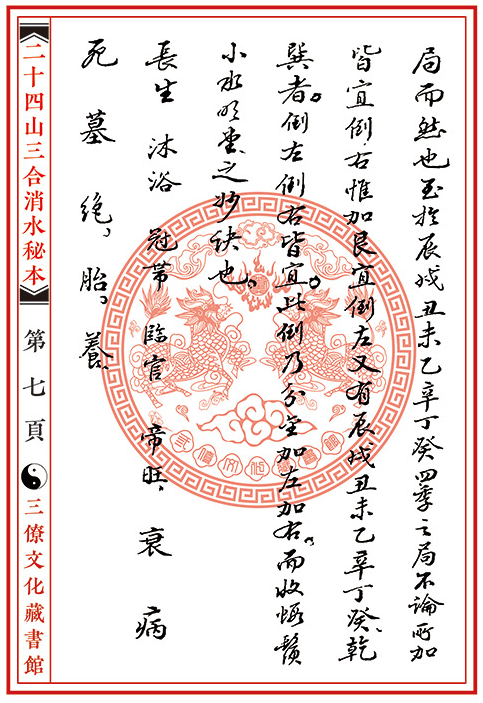 局而然也至於辰戌丑未乙辛丁癸四季之局不論所加
皆宜倒右惟加艮宜倒左又有辰戌丑未乙辛丁癸、乾
巽者。倒左倒右皆宜。此倒乃分金加左加右。而收蝦鬚
小水明堂之妙訣也。
長生 沐浴 冠帶 臨官 帝旺、衰 病
死 墓 絶、胎。養
二十四山三合消水秘本
第七頁
三僚文化藏書館